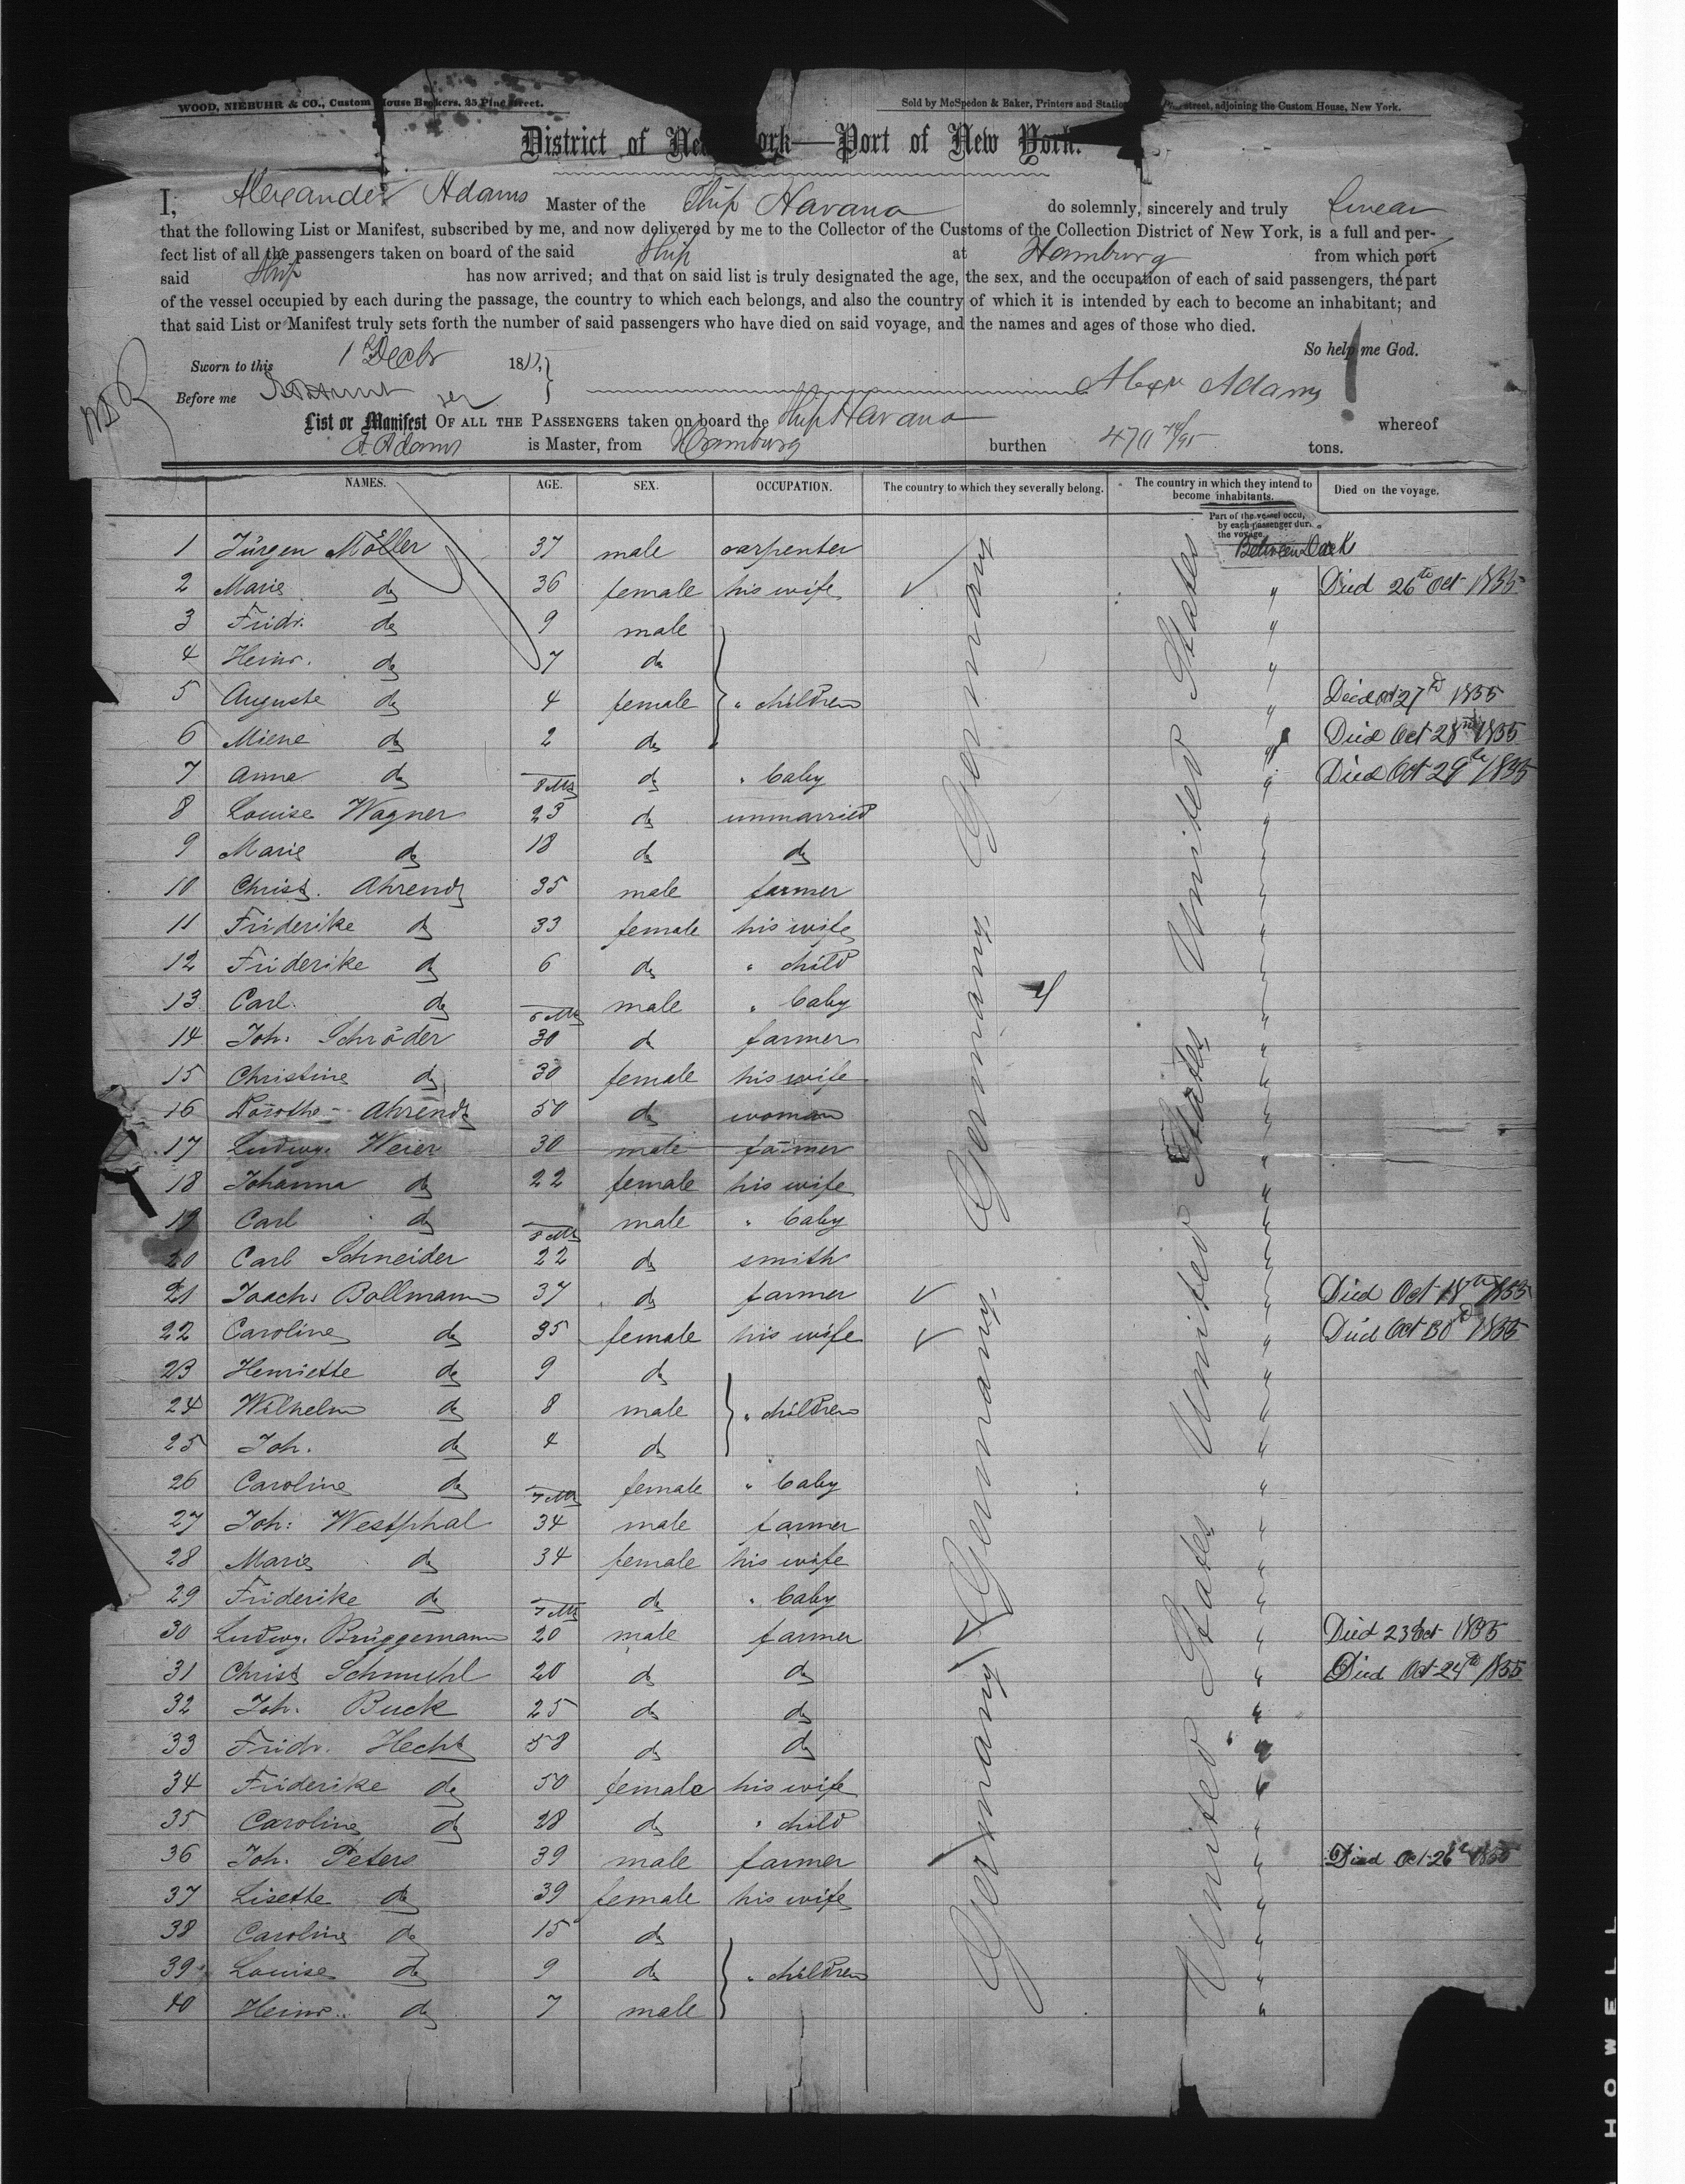 WOOD, NIEBUHR & CO., Custom House Brokers, 25 Pine Street.
Sold by McSpedon & Baker, Printers and Statio Pine street, adjoining the Custom House, New York.
District of New York—Port of New York.
I, Alexander Adams Master of the Ship Havana do solemnly, sincerely and truly swear
that the following List or Manifest, subscribed by me, and now delivered by me to the Collector of the Customs of the Collection District of New York, is a full and per-
fect list of all the passengers taken on board of the said Ship at Hamburg from which port
said Ship has now arrived; and that on said list is truly designated the age, the sex, and the occupation of each of said passengers, the part
of the vessel occupied by each during the passage, the country to which each belongs, and also the country of which it is intended by each to become an inhabitant; and
that said List or Manifest truly sets forth the number of said passengers who have died on said voyage, and the names and ages of those who died.
So help me God.
Sworn to this 1 Decbr 1855
Before me
Alexr Adams
List or Manifest OF ALL THE PASSENGERS taken on board the Ship Havana whereof
A Adams is Master, from Hamburg burthen 470 /95 tons.
NAMES. AGE. SEX. OCCUPATION. The country to which they severally belong. The country in which they intend to become inhabitants. Died on the voyage.
Part of the vessel occu, by each passenger dur. the voyage.
1 Jürgen Möller 37 male carpenter Between Deck
2 Marie do 36 female his wife " Died 26th Oct 1855
3 Fridr. do 9 male "
4 Heinr. do 7 do "
5 Auguste do 4 female " children " Died Oct 27th 1855
6 Miene do 2 do " Died Oct 28th 1855
7 Anna do 8 Ms do " baby " Died Oct 29th 1855
8 Louise Wagner 23 do unmarried "
9 Marie do 18 do do "
10 Christ. Ahrends 35 male farmer "
11 Friderike do 33 female his wife "
12 Friderike do 6 do " child "
13 Carl do 6 Ms male " baby "
14 Joh. Schröder 30 do farmer "
15 Christine do 30 female his wife "
16 Dorothe Ahrends 50 do woman "
17 Ludwg. Weier 30 male farmer "
18 Johanna do 22 female his wife "
19 Carl do 8 Ms male " baby "
20 Carl Schneider 22 do smith "
21 Joach. Bollmann 37 do farmer " Died Oct 18th 1855
22 Caroline do 35 female his wife " Died Oct 30th 1855
23 Henriette do 9 do "
24 Wilhelm do 8 male " children "
25 Joh. do 4 do "
26 Caroline do 7 Ms female " baby "
27 Joh: Westphal 34 male farmer "
28 Marie do 34 female his wife "
29 Friderike do 7 Ms do " baby "
30 Ludwg. Brüggemann 20 male farmer " Died 23 Oct 1855
31 Christ Schmuhl 20 do do " Died Oct 24th 1855
32 Joh. Buck 25 do do "
33 Fridr. Hecht 58 do do "
34 Friderike do 50 female his wife "
35 Caroline do 28 do " child "
36 Joh. Peters 39 male farmer " Died Oct 26th 1855
37 Lisette do 39 female his wife "
38 Caroline do 15 do "
39 Louise do 9 do " children "
40 Heinr. do 7 male "
Germany Germany, Germany, Germany
United States United States United States
HOWELL